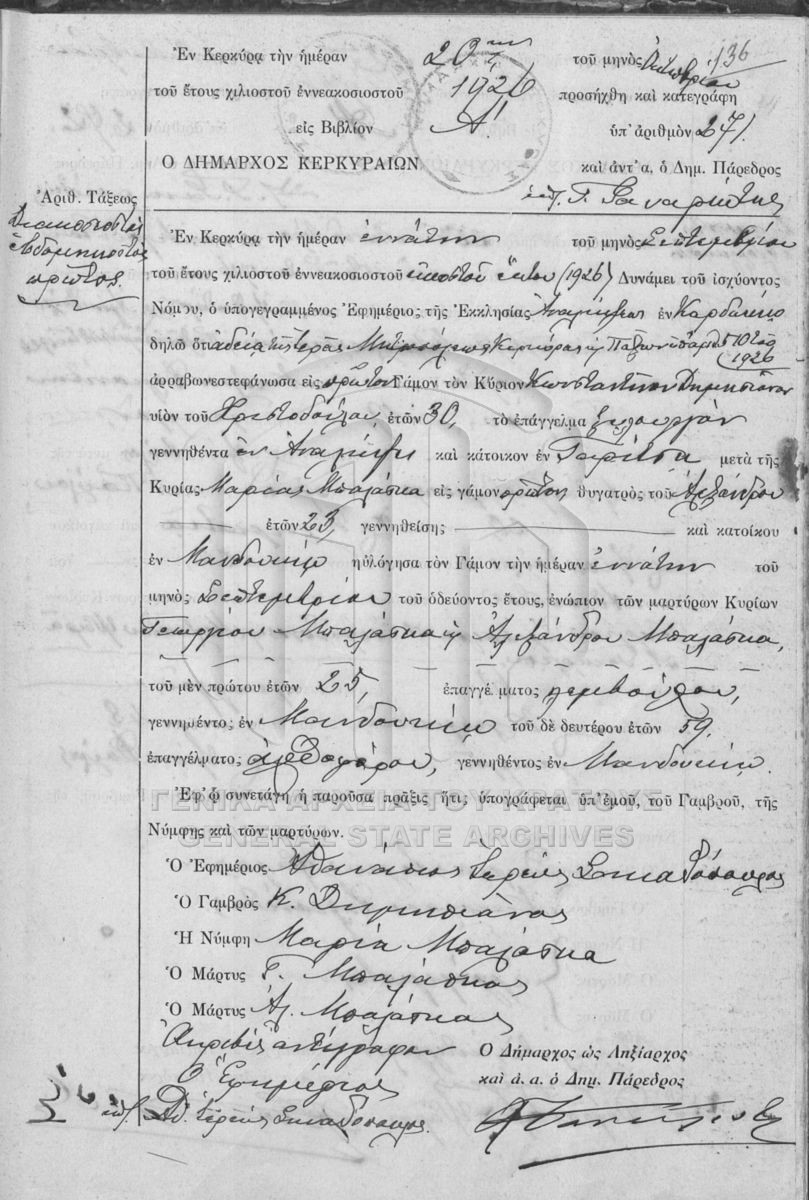 136
Ἐν Κερκύρᾳ τὴν ἡμέραν 20ην τοῦ μηνὸς Ὀκτωβρίου
τοῦ ἔτους χιλιοστοῦ ἐννεακοσιοστοῦ 1926 προσήχθη καὶ κατεγράφη
εἰς Βιβλίον Α' ὑπ' ἀριθμὸν 271.
Ο ΔΗΜΑΡΧΟΣ ΚΕΡΚΥΡΑΙΩΝ καὶ ἀντ' α, ὁ Δημ. Πάρεδρος
Ἀριθ. Τάξεως
Διακοσιοστὸς
ἑβδομηκοστὸς
πρῶτος.
Ἐν Κερκύρᾳ τὴν ἡμέραν ἐννάτην τοῦ μηνὸς Σεπτεμβρίου
τοῦ ἔτους χιλιοστοῦ ἐννεακοσιοστοῦ εἰκοστοῦ ἕκτου (1926) Δυνάμει τοῦ ἰσχύοντος
Νόμου, ὁ ὑπογεγραμμένος Ἐφημέριος τῆς Ἐκκλησίας Ἀναλήψεως ἐν Καρδακίῳ
δηλῶ ὅτι ἀδείᾳ τῆς Ἱερᾶς Μητροπόλεως Κερκύρας κ Παξῶν
1926
ἀρραβωνεστεφάνωσα εἰς πρῶτον Γάμον τὸν Κύριον Κωνσταντῖνον Δημητιάνον
υἱὸν τοῦ Χριστοδούλου, ἐτῶν 30, τὸ ἐπάγγελμα ξυλουργὸν
γεννηθέντα ἐν Ἀναλήψει καὶ κάτοικον ἐν Γαρίτσα μετὰ τῆς
Κυρίας Μαρίας Μπαλάσκα εἰς γάμον πρῶτον θυγατρὸς τοῦ Ἀλεξάνδρου
ἐτῶν 23, γεννηθείσης καὶ κατοίκου
ἐν Μανδουκίῳ ηὐλόγησα τὸν Γάμον τὴν ἡμέραν ἐννάτην τοῦ
μηνὸς Σεπτεμβρίου τοῦ ὁδεύοντος ἔτους, ἐνώπιον τῶν μαρτύρων Κυρίων
Γεωργίου Μπαλάσκα κ Ἀλεξάνδρου Μπαλάσκα,
τοῦ μὲν πρώτου ἐτῶν 25, ἐπαγγέ ματος λεμβούχου,
γεννηθέντος ἐν Μανδουκίῳ τοῦ δὲ δευτέρου ἐτῶν 59,
ἐπαγγέλματος ἀχθοφόρου, γεννηθέντος ἐν Μανδουκίῳ.
Ἐφ' ᾧ συνετάγη ἡ παροῦσα πρᾶξις ἥτις ὑπογράφεται ὑπ' ἐμοῦ, τοῦ Γαμβροῦ, τῆς
Νύμφης καὶ τῶν μαρτύρων.
ΓΕΝΙΚΑ ΑΡΧΕΙΑ ΤΟΥ ΚΡΑΤΟΥΣ
GENERAL STATE ARCHIVES
Ὁ Ἐφημέριος Ἀθανάσιος Ἱερεὺς
Ὁ Γαμβρὸς Κ. Δημητιάνος
Ἡ Νύμφη Μαρία Μπαλάσκα
Ὁ Μάρτυς Γ. Μπαλάσκας
Ὁ Μάρτυς Ἀλ. Μπαλάσκας
Ἀκριβὲς ἀντίγραφον
Ὁ Ἐφημέριος
Ὁ Δήμαρχος ὡς Ληξίαρχος
καὶ ἀ. α. ὁ Δημ. Πάρεδρος